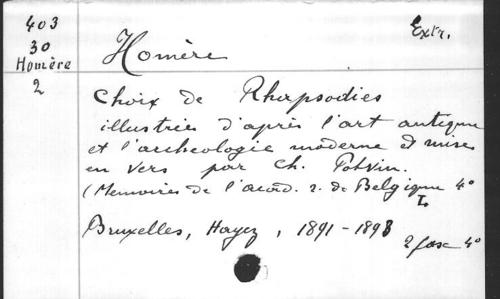 403
30
Homère
2
Extr.
Homère
Choix de Rhapsodies
illustrées d'après l'art antique
et l'archéologie moderne et mises
en vers par Ch. Potvin.
(Memoires de l'acad. r. de Belgique 4°
Bruxelles, Hayez, 1891-1893
2 fasc 4°